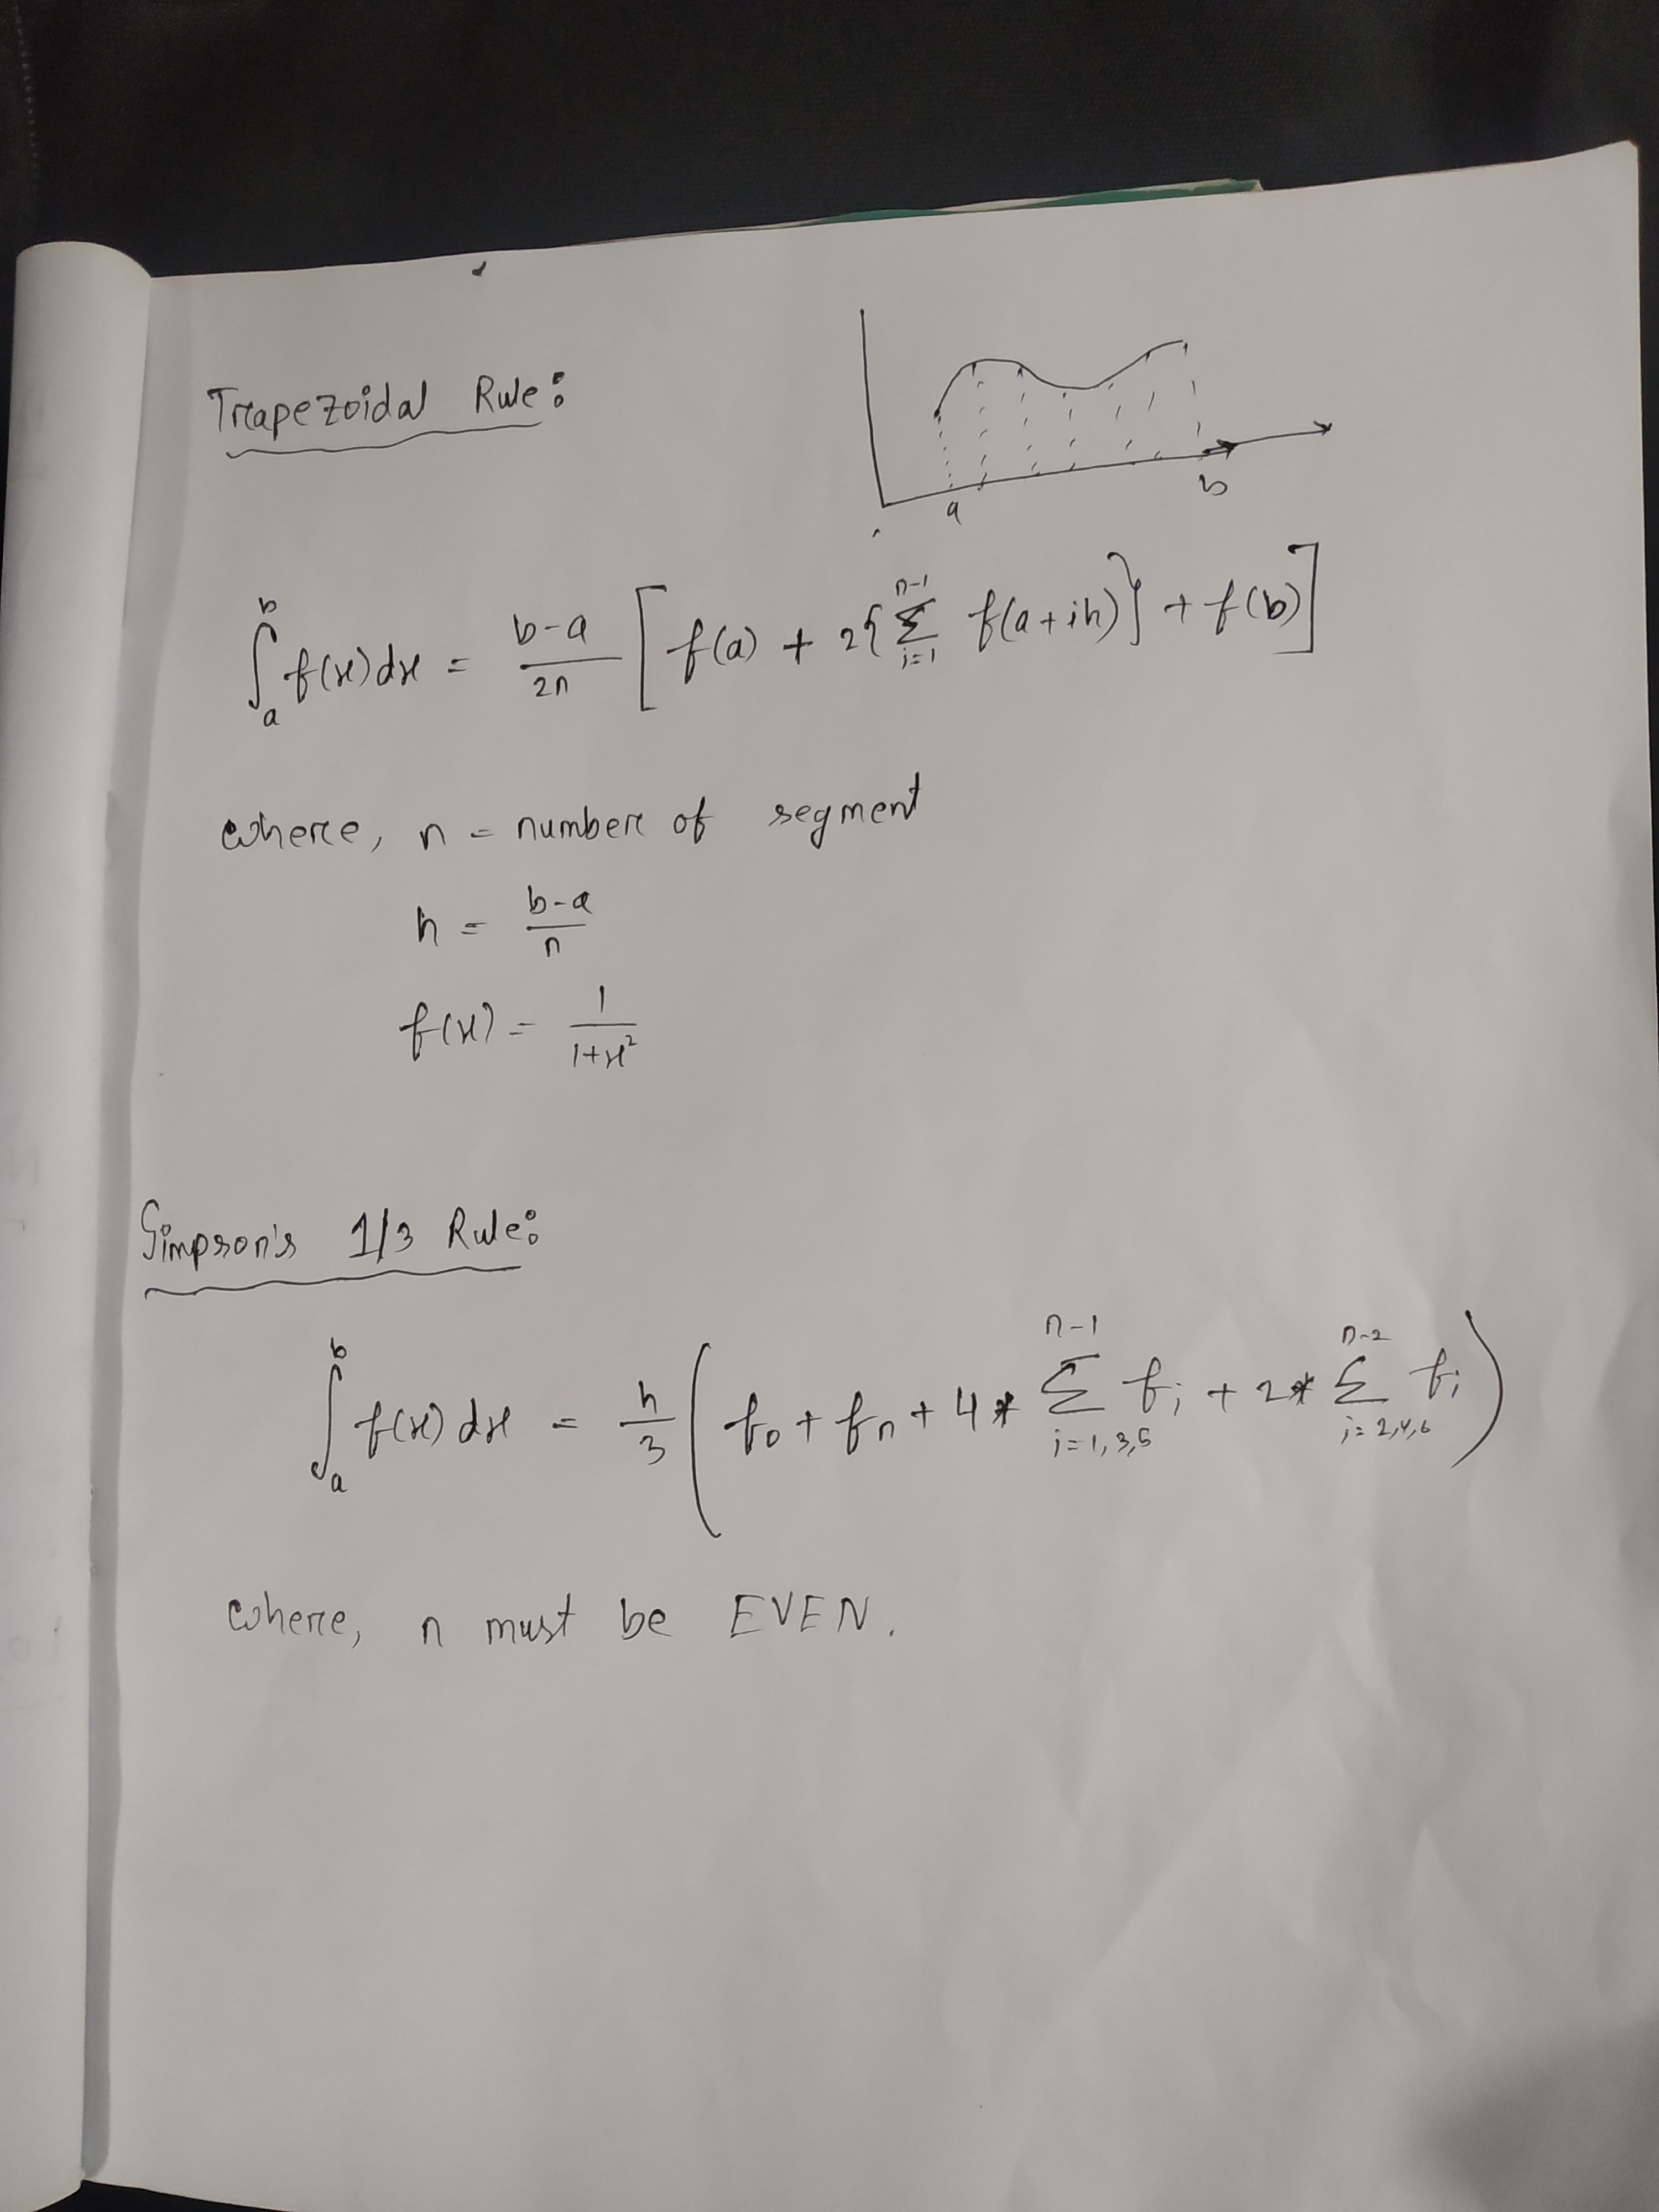 Trapezoidal Rule:
a b
∫_a^b f(x) dx = (b-a)/(2n) [ f(a) + 2{ Σ_{i=1}^{n-1} f(a+ih) } + f(b) ]
where, n = number of segment
h = (b-a)/n
f(x) = 1/(1+x²)
Simpson's 1/3 Rule:
∫_a^b f(x) dx = h/3 ( f₀ + fₙ + 4 * Σ_{i=1,3,5}^{n-1} fᵢ + 2 * Σ_{i=2,4,6}^{n-2} fᵢ )
where, n must be EVEN.